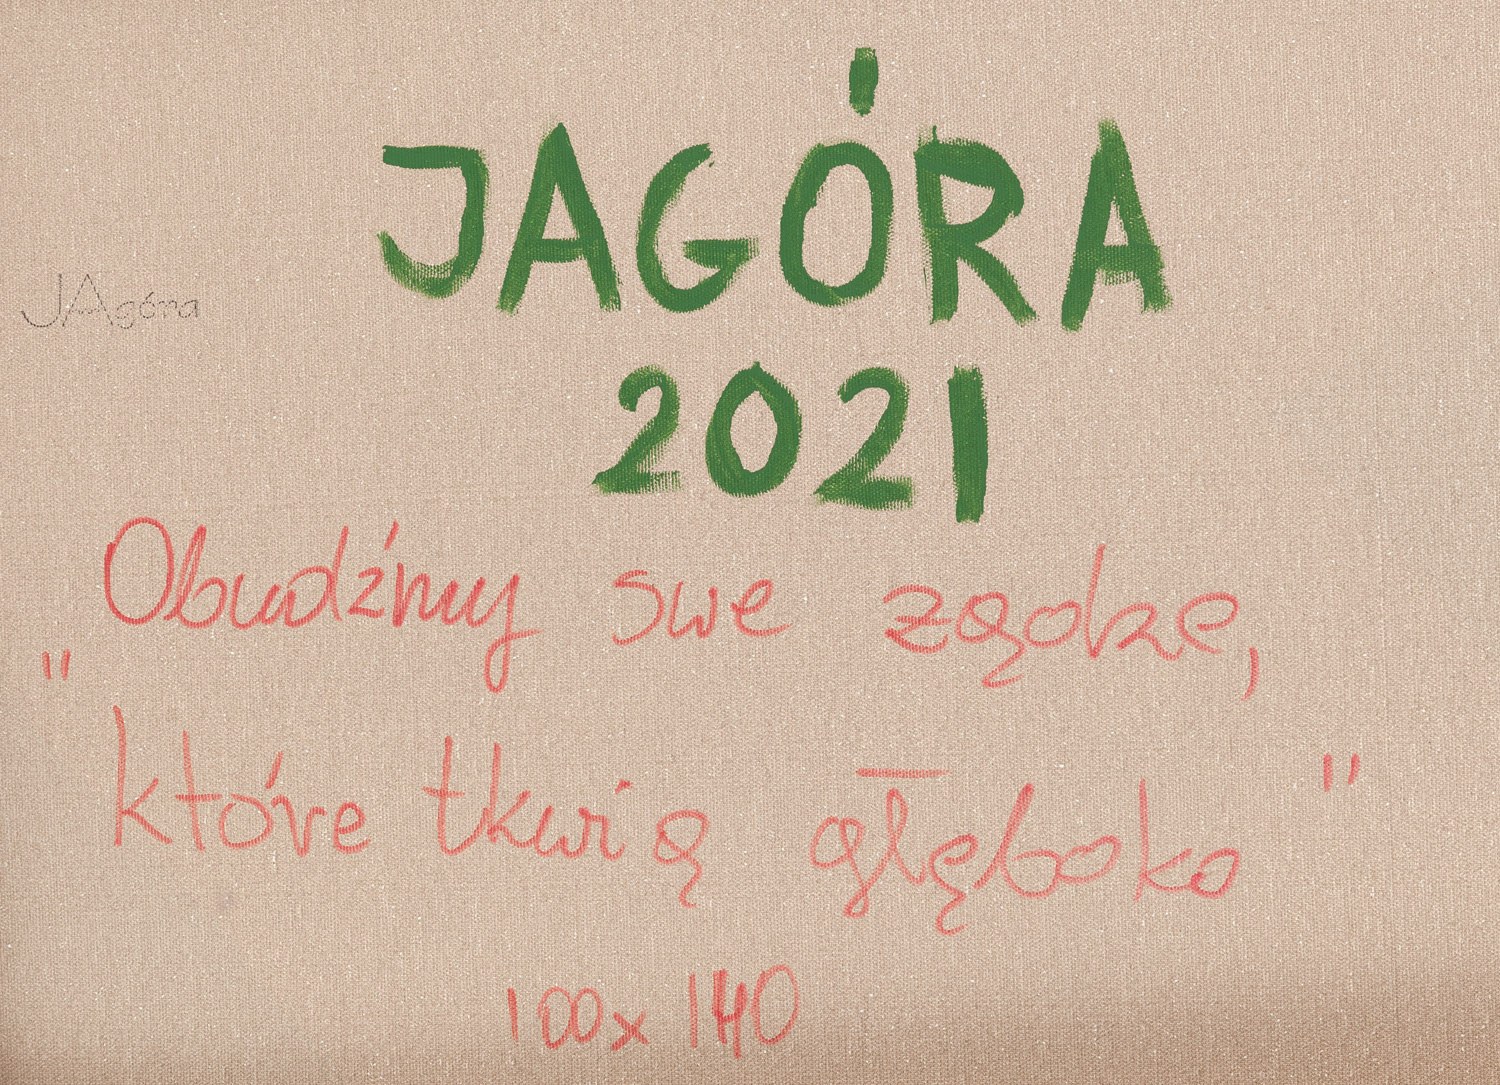 JAGÓRA
JAgóra
2021
"Obudźmy swe ządze,
które tkwią głęboko"
100x140